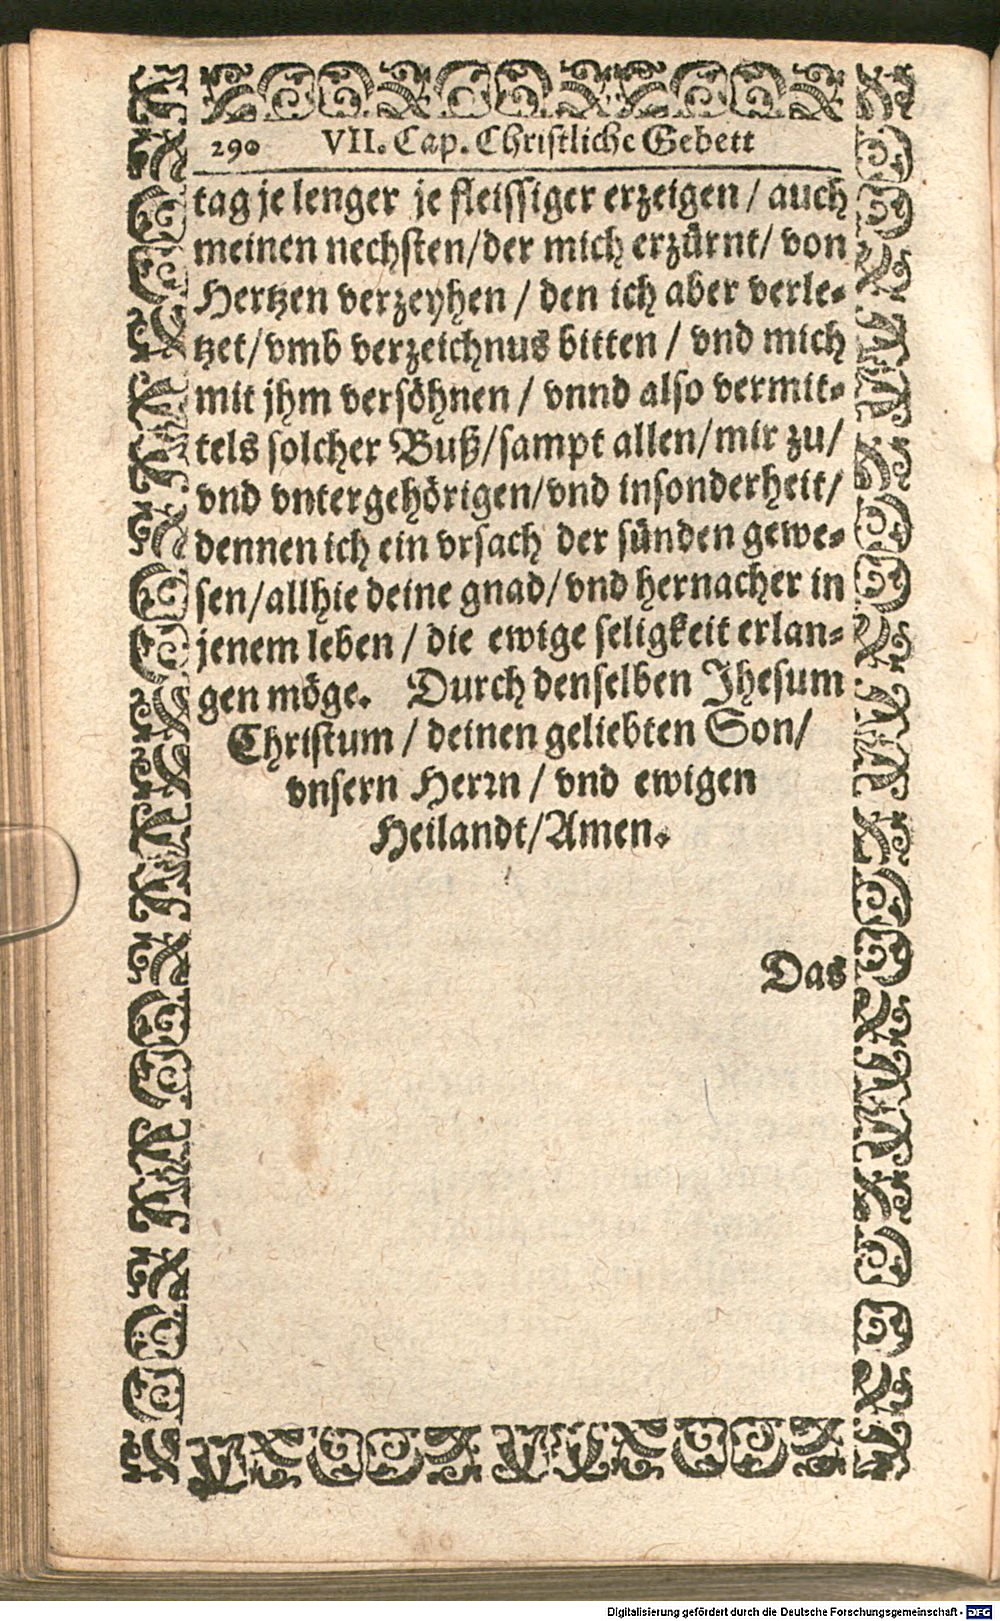 290 VII. Cap. Christliche Gebett
tag je lenger je fleissiger erzeigen / auch
meinen nechsten/der mich erzürnt/ von
Hertzen verzeyhen / den ich aber verle-
tzet/vmb verzeichnus bitten / vnd mich
mit jhm versöhnen / vnnd also vermit-
tels solcher Buß/sampt allen/mir zu/
vnd vntergehörigen/vnd insonderheit/
dennen ich ein vrsach der sünden gewe-
sen/allhie deine gnad/vnd hernacher in
jenem leben / die ewige seligkeit erlan-
gen möge. Durch denselben Jhesum
Christum / deinen geliebten Son/
vnsern Herrn / vnd ewigen
Heilandt/Amen.
Das
Digitalisierung gefördert durch die Deutsche Forschungsgemeinschaft - DFG